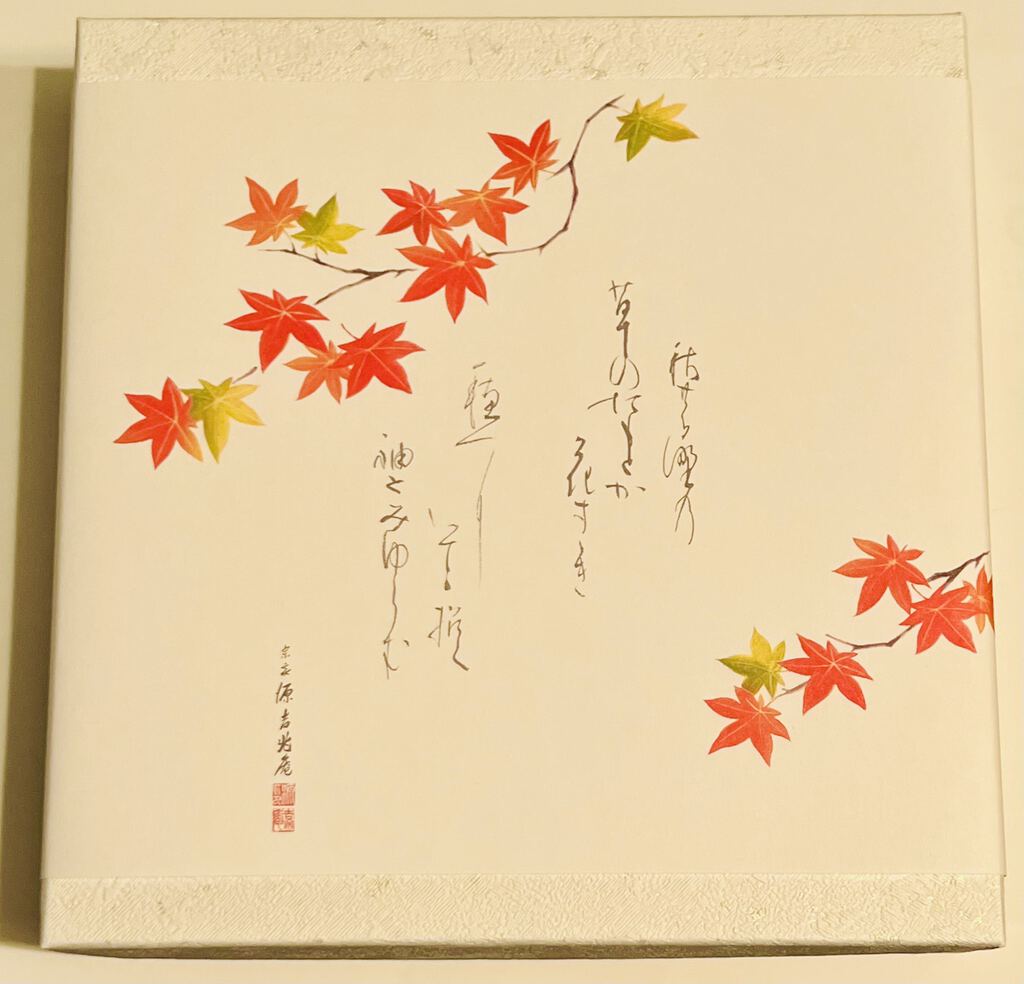 秋の野の
草のたもとか
花すゝき
穂に
いてゝ招く
袖とみゆらむ
宗家 源吉兆庵